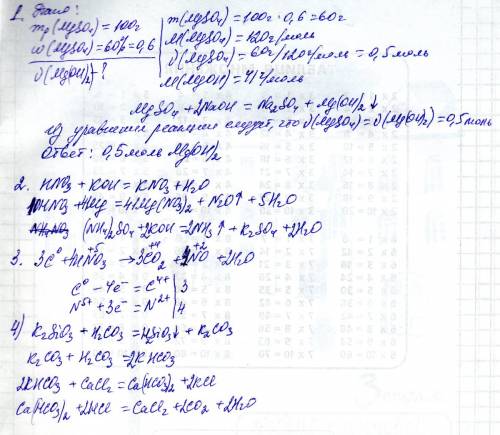 1. Дано:
mр(MgSO4) = 100г
ω(MgSO4) = 60% = 0,6
ν(Mg(OH)2 - ?
m(MgSO4) = 100г · 0,6 = 60г
M(MgSO4) = 120г/моль
ν(MgSO4) = 60г/120г/моль = 0,5 моль
MgSO4 + 2NaOH = Na2SO4 + Mg(OH)2 ↓
из уравнения реакции следует, что ν(MgSO4) = ν(Mg(OH)2) = 0,5 моль
Ответ: 0,5 моль Mg(OH)2
2. HNO3 + KOH = KNO3 + H2O
10HNO3 + 4Mg = 4Mg(NO3)2 + N2O↑ + 5H2O
(NH4)2SO4 + 2KOH = 2NH3↑ + K2SO4 + 2H2O
3. 3C0 + 4HN+5O3 → 3C+4O2 + 4N+2O + 2H2O
C0 - 4e- = C4+ | 3
N5+ + 3e- = N2+ | 4
4) K2SiO3 + H2CO3 = H2SiO3↓ + K2CO3
K2CO3 + H2CO3 = 2KHCO3
2KHCO3 + CaCl2 = Ca(HCO3)2 + 2KCl
Ca(HCO3)2 + 2HCl = CaCl2 + 2CO2 + 2H2O